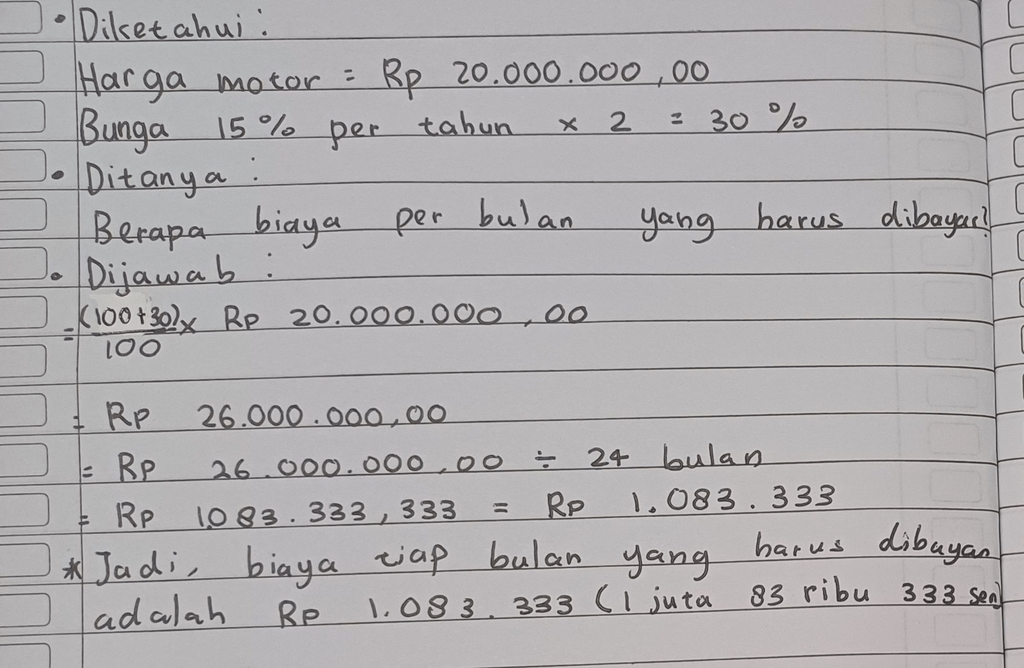 • Diketahui :
Harga motor = Rp 20.000.000,00
Bunga 15% per tahun × 2 = 30%
• Ditanya :
Berapa biaya per bulan yang harus dibayar?
• Dijawab :
= (100+30)/100 × Rp 20.000.000,00
= Rp 26.000.000,00
= Rp 26.000.000,00 ÷ 24 bulan
= Rp 1083.333,333 = Rp 1.083.333
* Jadi, biaya tiap bulan yang harus dibayan
adalah Rp 1.083.333 (1 juta 83 ribu 333 sen)